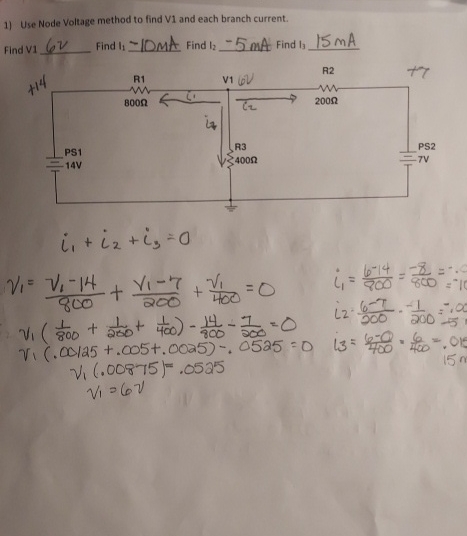 1) Use Node Voltage method to find V1 and each branch current.
Find V1 6V Find I₁ -10mA Find I₂ -5mA Find I₃ 15mA
+14 R1 V1 6V R2 +7
800Ω i₁ i₂ 200Ω
i₃
R3
400Ω
PS1
14V
PS2
7V
i₁ + i₂ + i₃ = 0
V₁ = V₁-14/800 + V₁-7/200 + V₁/400 = 0
V₁ (1/800 + 1/200 + 1/400) - 14/800 - 7/200 = 0
V₁ (.00125 + .005 + .0025) - .0525 = 0
V₁ (.00875) = .0525
V₁ = 6V
i₁ = 6-14/800 = -8/800 =
i₂ = 6-7/200 = -1/200 =
i3 = 6-0/400 = 6/400 =